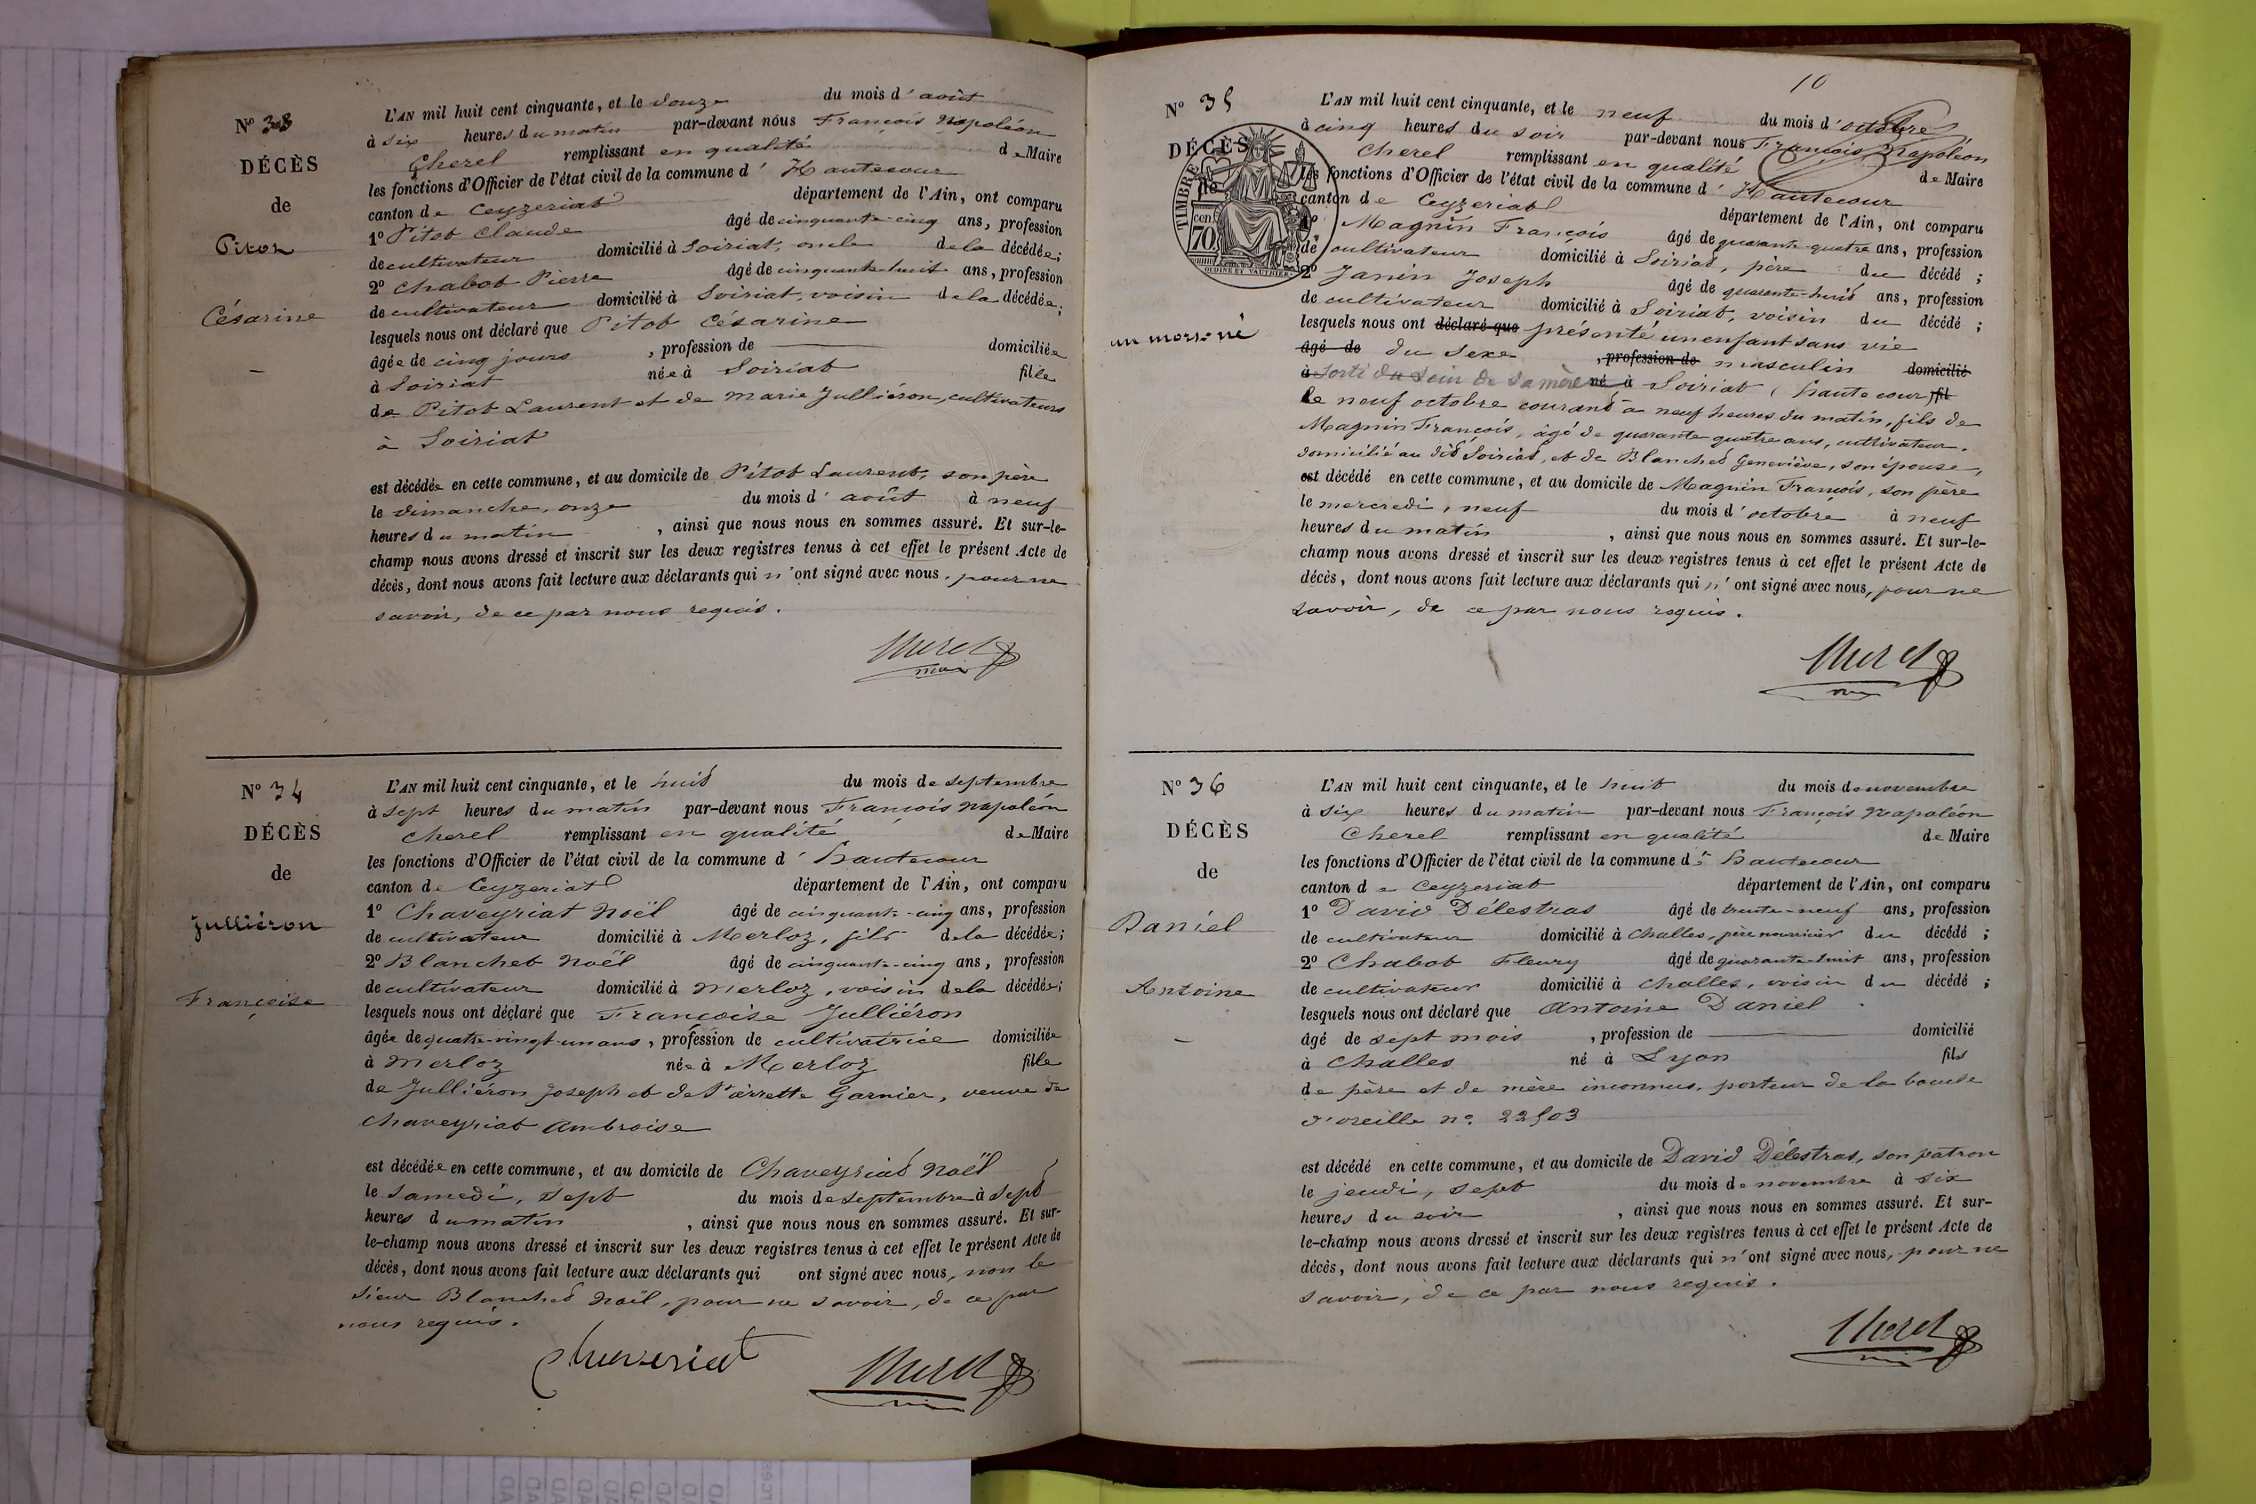 N° 33
DÉCÈS
de
Pitot
Césarine
L'AN mil huit cent cinquante, et le douze du mois d'août
à six heures du matin par-devant nous François Napoléon
Cherel remplissant en qualité de Maire
les fonctions d'Officier de l'état civil de la commune d'Hautecour
canton de Ceyzeriat département de l'Ain, ont comparu
1° Pitot Claude âgé de cinquante-cinq ans, profession
de cultivateur domicilié à Soiriat, oncle de la décédée;
2° Chabot Pierre âgé de cinquante-huit ans, profession
de cultivateur domicilié à Soiriat, voisin de la décédée;
lesquels nous ont déclaré que Pitot Césarine
âgée de cinq jours, profession de — domiciliée
à Soiriat née à Soiriat fille
de Pitot Laurent et de Marie Julliéron, cultivateurs
à Soiriat
est décédée en cette commune, et au domicile de Pitot Laurent, son père
le dimanche, onze du mois d'août à neuf
heures du matin, ainsi que nous nous en sommes assuré. Et sur-le-
champ nous avons dressé et inscrit sur les deux registres tenus à cet effet le présent Acte de
décès, dont nous avons fait lecture aux déclarants qui n'ont signé avec nous, pour ne
savoir, de ce par nous requis.
Cherel
maire
N° 34
DÉCÈS
de
Julliéron
Françoise
L'AN mil huit cent cinquante, et le huit du mois de septembre
à sept heures du matin par-devant nous François Napoléon
Cherel remplissant en qualité de Maire
les fonctions d'Officier de l'état civil de la commune d'hautecour
canton de Ceyzeriat département de l'Ain, ont comparu
1° Chaveyriat Noël âgé de cinquante-cinq ans, profession
de cultivateur domicilié à Merloz, fils de la décédée;
2° Blanchet Noël âgé de cinquante-cinq ans, profession
de cultivateur domicilié à Merloz, voisin de la décédée;
lesquels nous ont déclaré que Françoise Julliéron
âgée de quatre-vingt-un ans, profession de cultivatrice domiciliée
à Merloz née à Merloz fille
de Julliéron Joseph et de Pierrette Garnier, veuve de
Chaveyriat Ambroise
est décédée en cette commune, et au domicile de Chaveyriat Noël
le samedi, sept du mois de septembre à sept
heures du matin, ainsi que nous nous en sommes assuré. Et sur-
le-champ nous avons dressé et inscrit sur les deux registres tenus à cet effet le présent Acte de
décès, dont nous avons fait lecture aux déclarants qui ont signé avec nous, non le
sieur Blanchet Noël, pour ne savoir, de ce par
nous requis.
Chaveriat Cherel
maire
10
N° 35
DÉCÈS
de
TIMBRE
cent
70
OUDINÉ ET VAUTHIER
un mort-né
L'AN mil huit cent cinquante, et le neuf du mois d'octobre
à cinq heures du soir par-devant nous François Napoléon
Cherel remplissant en qualité de Maire
les fonctions d'Officier de l'état civil de la commune d'Hautecour
canton de Ceyzeriat département de l'Ain, ont comparu
1° Magnin François âgé de quarante-quatre ans, profession
de cultivateur domicilié à Soiriat, père du décédé;
2° Janin Joseph âgé de quarante-huit ans, profession
de cultivateur domicilié à Soiriat, voisin du décédé;
lesquels nous ont déclaré que présenté un enfant sans vie
âgé de du sexe, profession de masculin domicilié
à sorti du sein de sa mère né à Soiriat (hautecour) fil
le neuf octobre courant à neuf heures du matin, fils de
Magnin François, âgé de quarante quatre ans, cultivateur,
domicilié au dit Soiriat, et de Blanchet Geneviève, son épouse,
est décédé en cette commune, et au domicile de Magnin François, son père
le mercredi, neuf du mois d'octobre à neuf
heures du matin, ainsi que nous nous en sommes assuré. Et sur-le-
champ nous avons dressé et inscrit sur les deux registres tenus à cet effet le présent Acte de
décès, dont nous avons fait lecture aux déclarants qui n'ont signé avec nous, pour ne
savoir, de ce par nous requis.
Cherel
N° 36
DÉCÈS
de
Daniel
Antoine
L'AN mil huit cent cinquante, et le huit du mois de novembre
à six heures du matin par-devant nous François Napoléon
Cherel remplissant en qualité de Maire
les fonctions d'Officier de l'état civil de la commune d'hautecour
canton de Ceyzeriat département de l'Ain, ont comparu
1° David Délestras âgé de trente-neuf ans, profession
de cultivateur domicilié à Challes, père nourricier du décédé;
2° Chabot Fleury âgé de quarante-huit ans, profession
de cultivateur domicilié à Challes, voisin du décédé;
lesquels nous ont déclaré que Antoine Daniel
âgé de sept mois, profession de — domicilié
à Challes né à Lyon fils
de père et de mère inconnus, porteur de la boucle
d'oreille n° 22503
est décédé en cette commune, et au domicile de David Délestras, son patron
le jeudi, sept du mois de novembre à six
heures du soir, ainsi que nous nous en sommes assuré. Et sur-
le-champ nous avons dressé et inscrit sur les deux registres tenus à cet effet le présent Acte de
décès, dont nous avons fait lecture aux déclarants qui n'ont signé avec nous, pour ne
savoir, de ce par nous requis.
Cherel